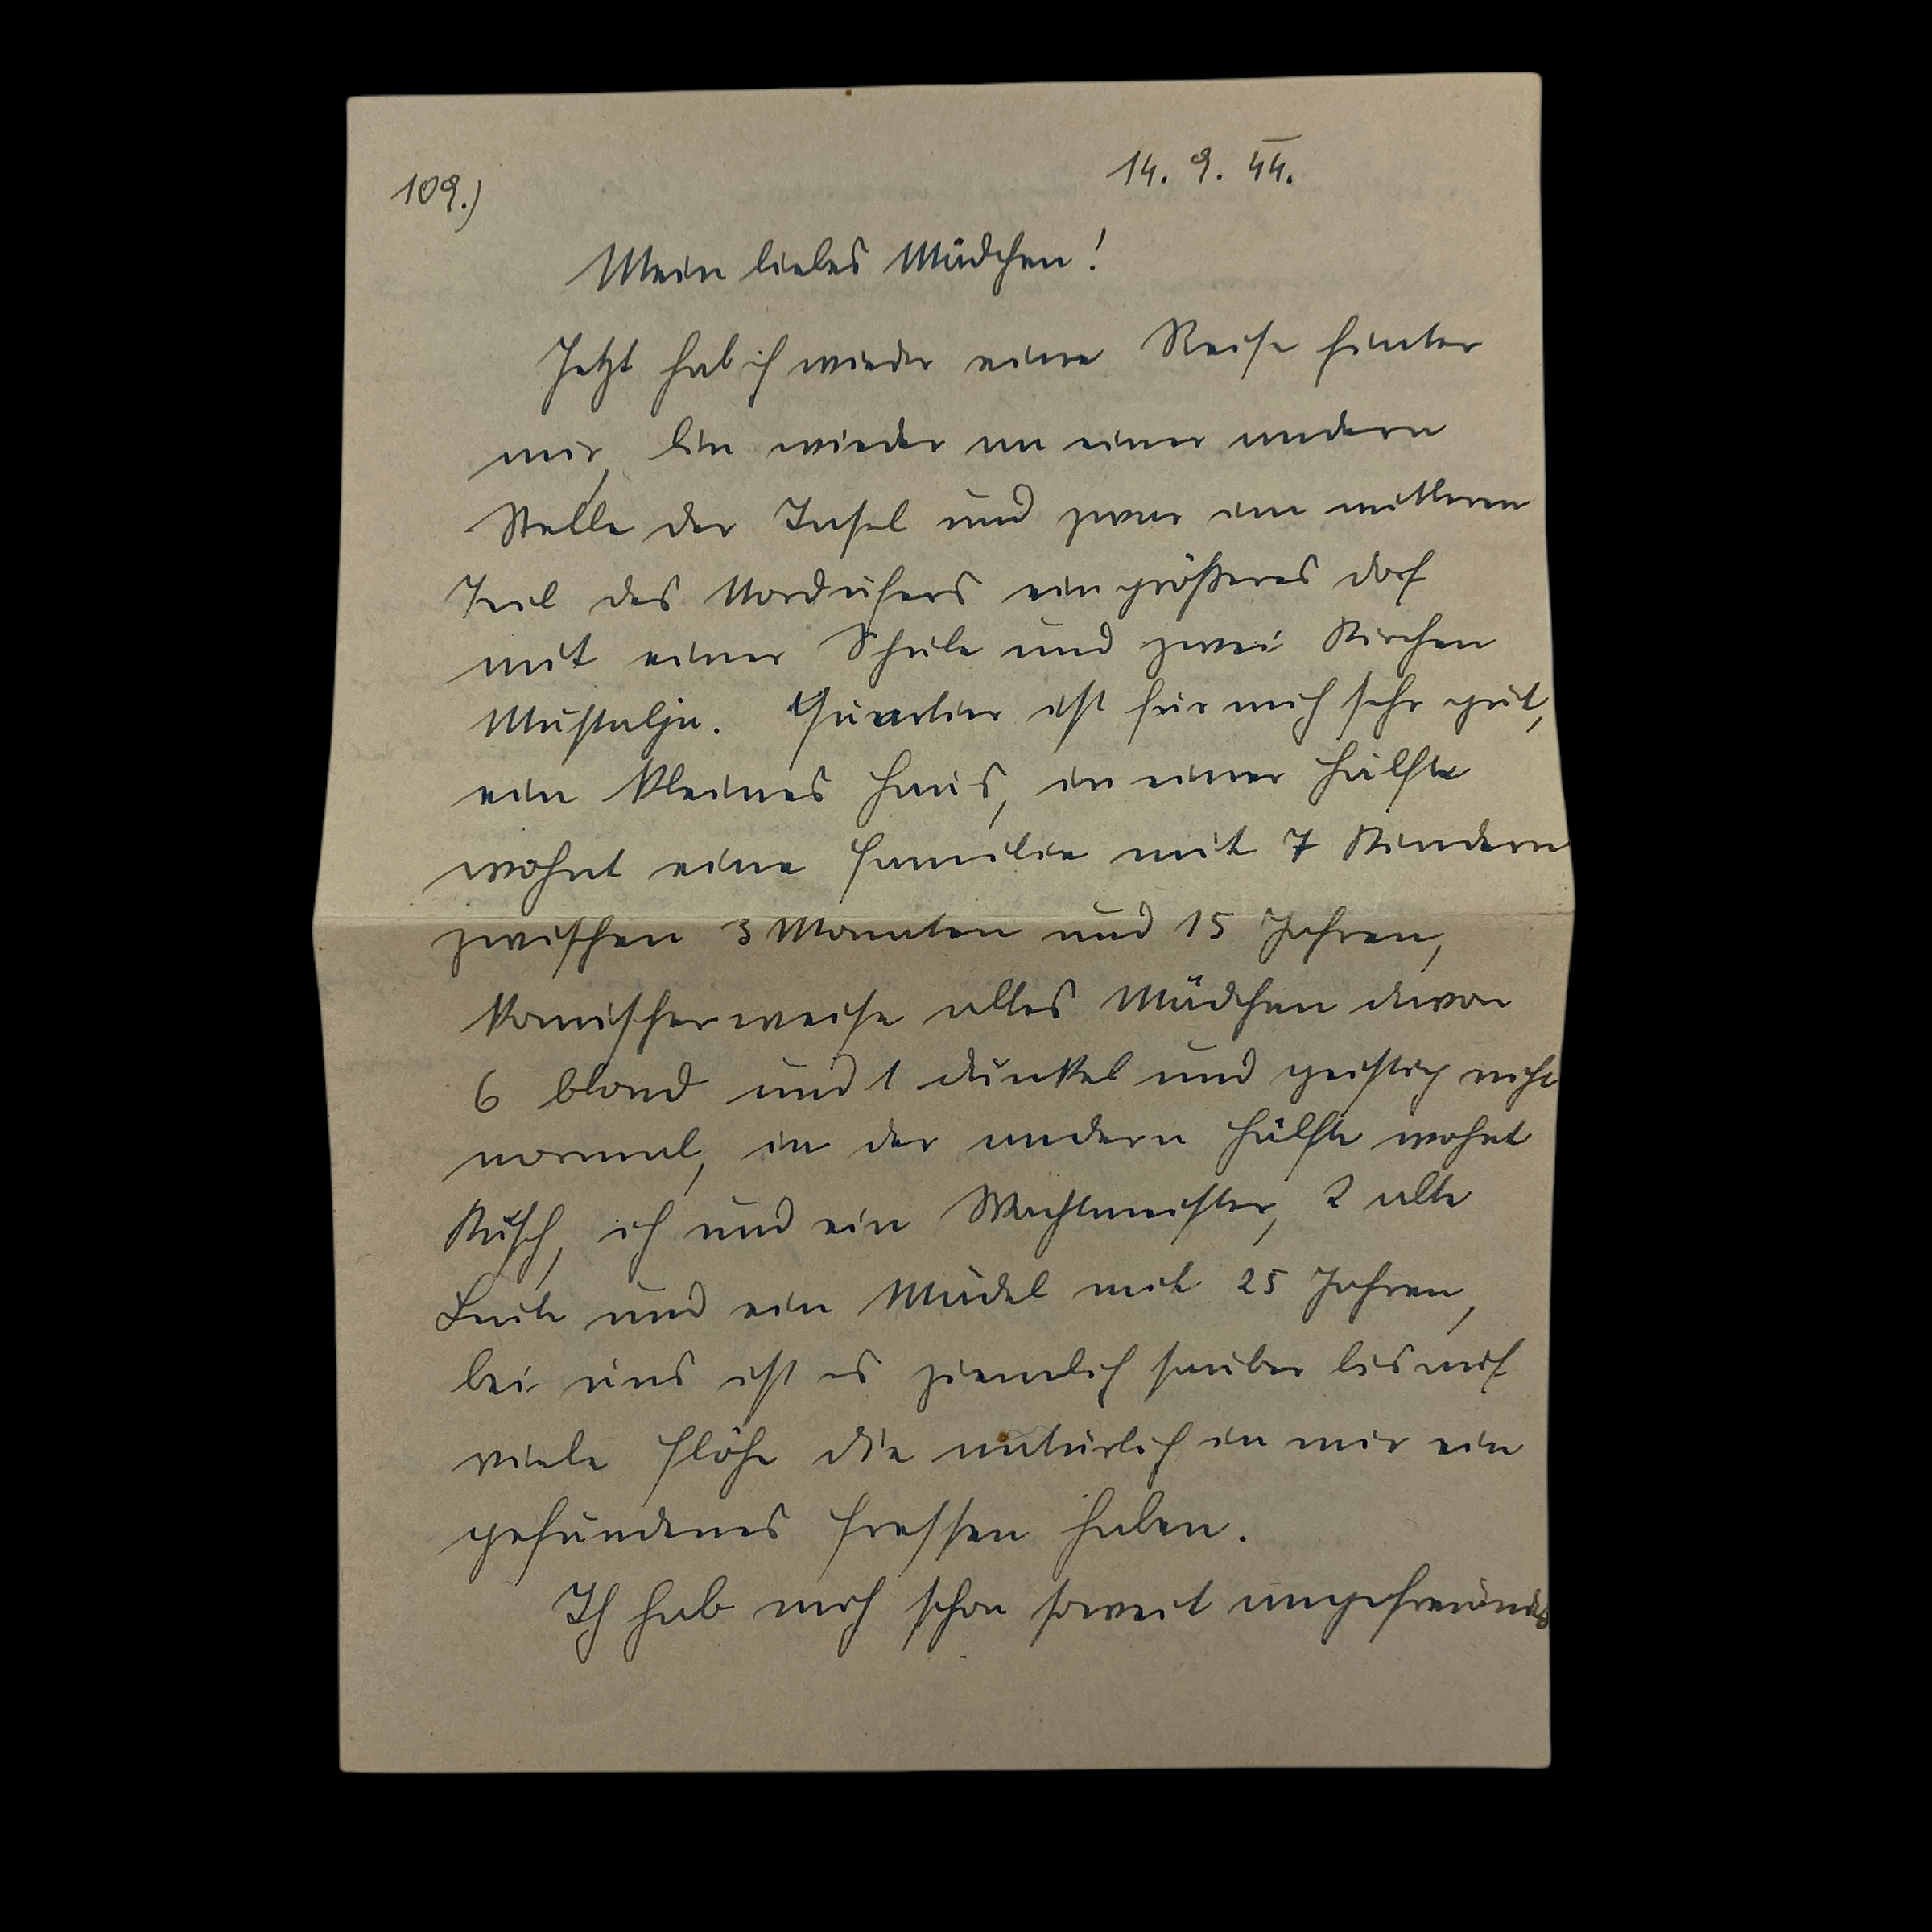 109.)
14. 9. 44.
Mein liebes Mädchen!
Jetzt hab ich wieder eine Reise hinter
mir, bin wieder an einer andern
Stelle der Insel und zwar im mittleren
Teil des Nordufers ein größeres Dorf
mit einer Schule und zwei Kirchen
Mustalja. Quartier ist für mich sehr gut,
ein kleines Haus, in einer Hälfte
wohnt eine Familie mit 7 Kindern
zwischen 3 Monaten und 15 Jahren,
komischerweise alles Mädchen davon
6 blond und 1 dunkel und geistig nicht
normal, in der andern Hälfte wohnt
Kusch, ich und ein Wachtmeister, 2 alte
Leute und ein Mädel mit 25 Jahren,
bei uns ist es ziemlich sauber bis auf
viele Flöhe die natürlich in mir ein
gefundenes Fressen haben.
Ich hab mich schon soweit angefreundet